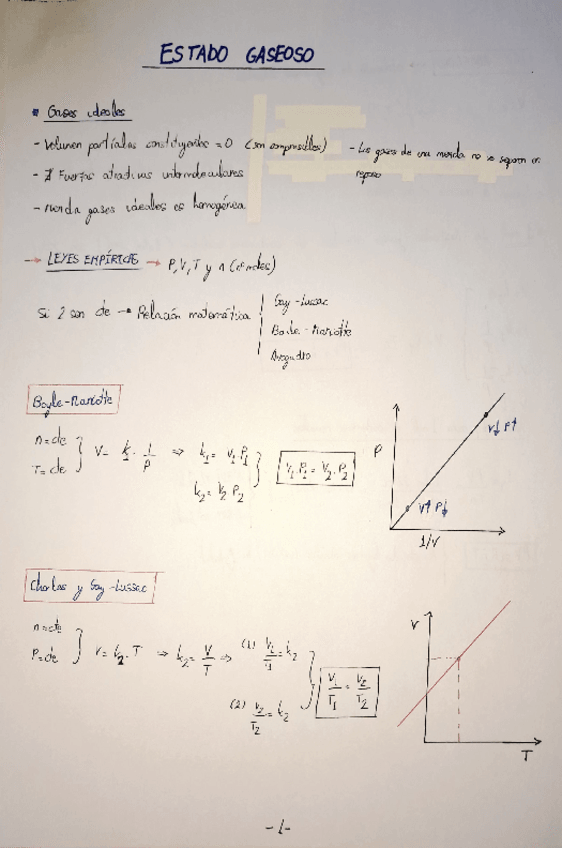 ESTADO GASEOSO
* Gases ideales
- Volumen partículas constituyentes = 0 (son compresibles) - Los gases de una mezcla no se separan en reposo
- ∄ Fuerzas atractivas intermoleculares
- Mezcla gases ideales es homogénea
→ LEYES EMPÍRICAS → P, V, T y n (nº moles)
Si 2 son cte → Relación matemática
Gay-Lussac
Boyle-Mariotte
Avogadro
Boyle-Mariotte
n=cte
T=cte
V= k₁ · 1/P ⇒ k₁ = V₁·P₁
k₂= V₂ P₂
V₁·P₁ = V₂·P₂
P
V↓ P↑
V↑ P↓
1/V
Charles y Gay-Lussac
n=cte
P=cte
V= k₂ · T ⇒ k₂ = V/T ⇒ (1) V₁/T₁ = k₂
(2) V₂/T₂ = k₂
V₁/T₁ = V₂/T₂
V
T
-1-